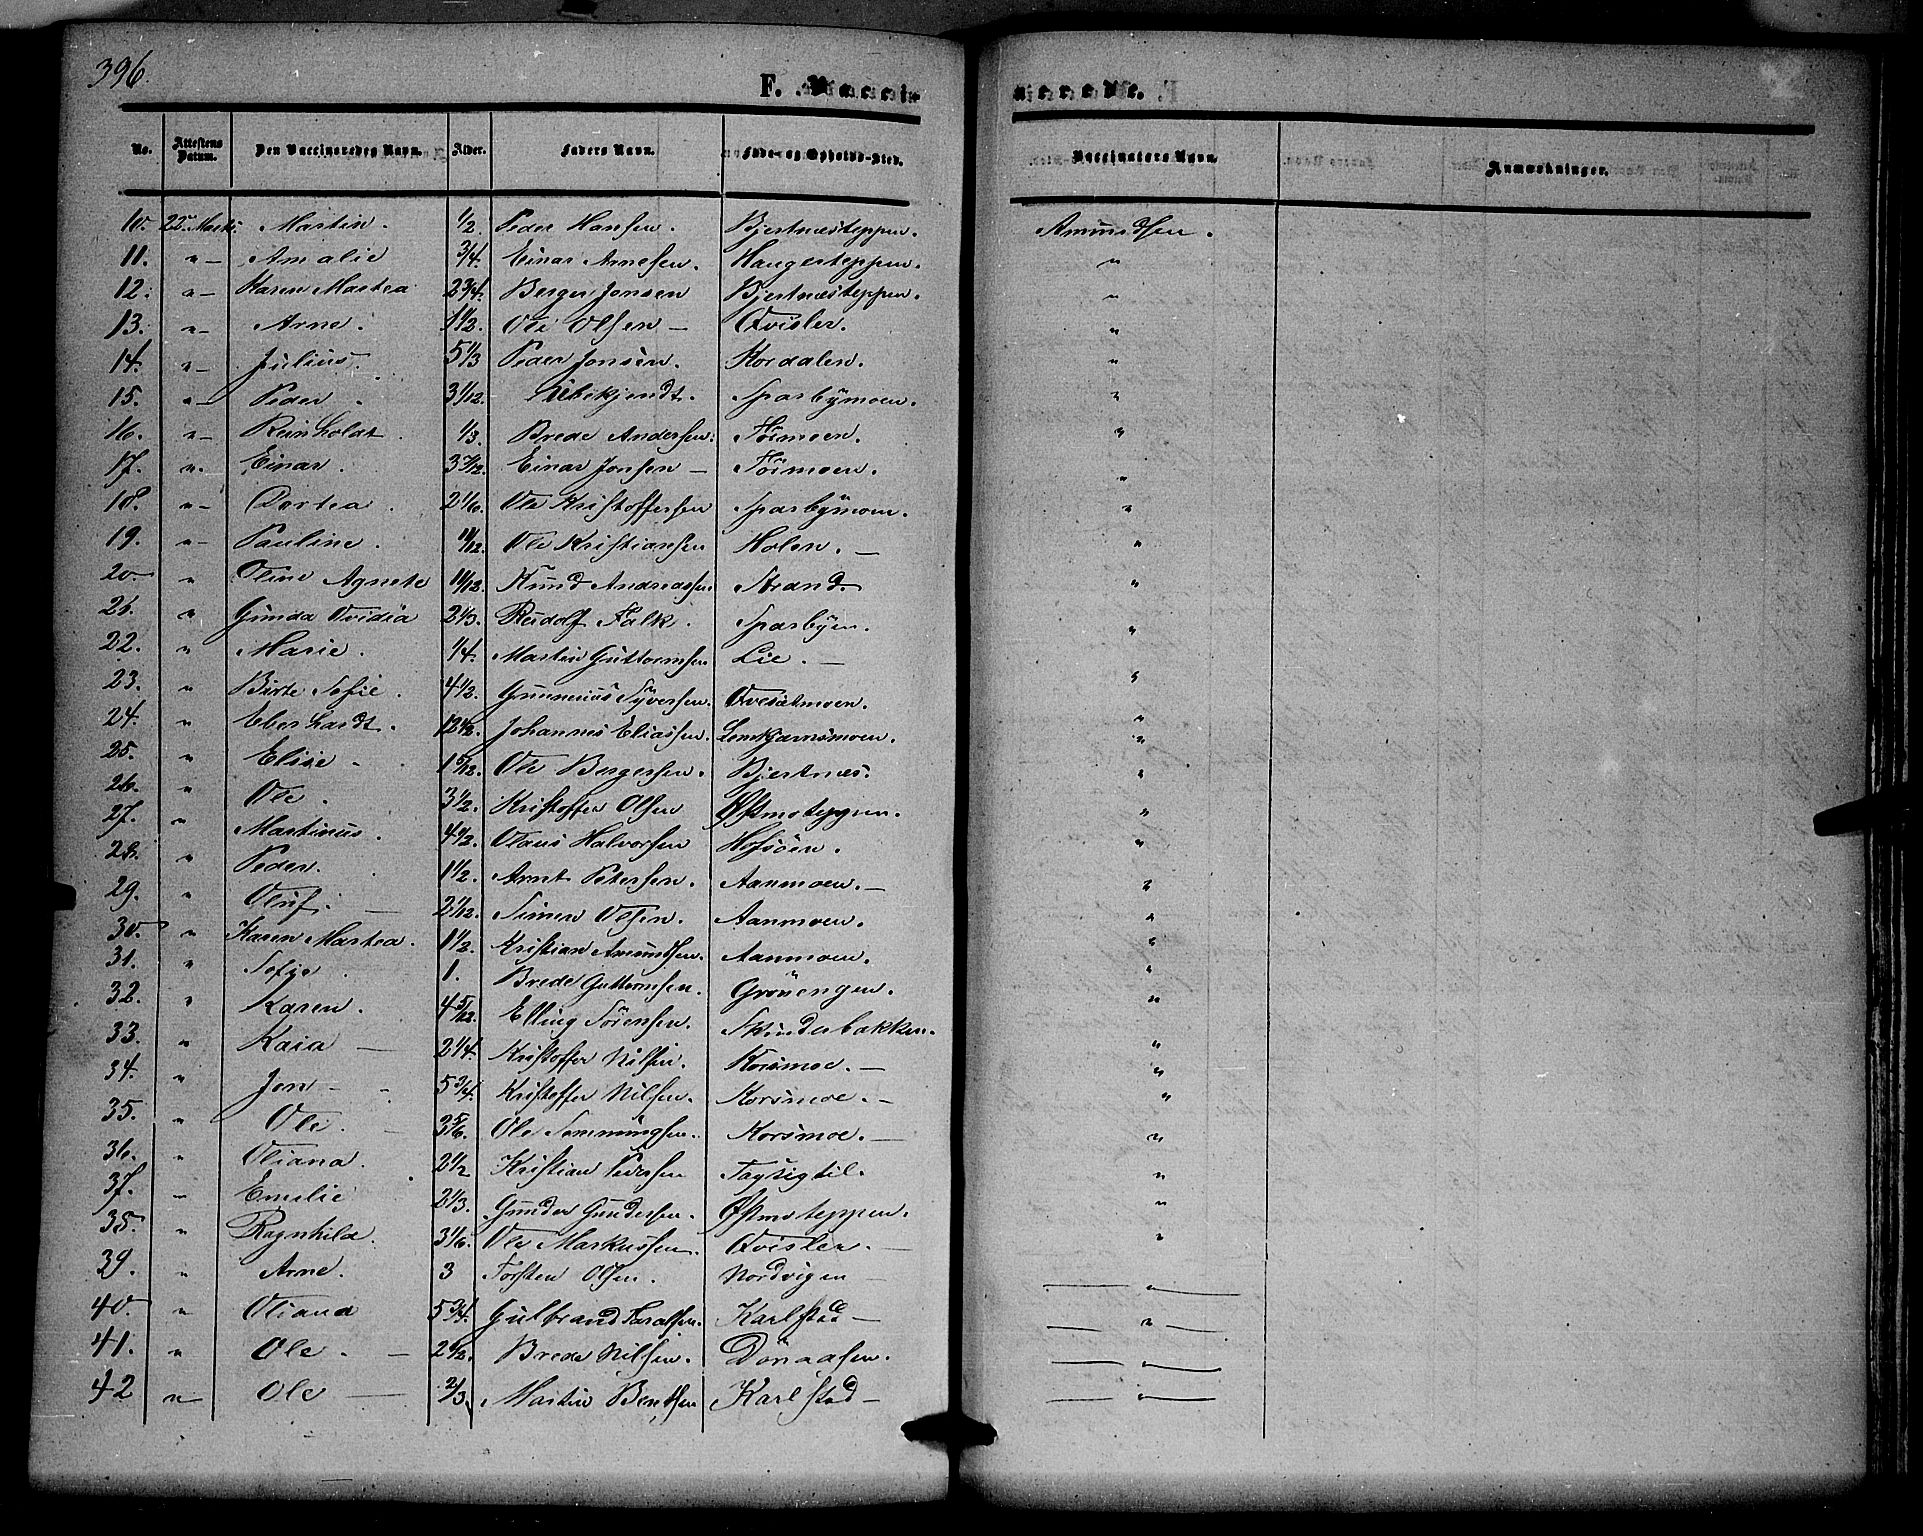 396.
F. Vaccinerede.
No. Attestens Datum. Den Vaccineredes Navn. Alder. Faders Navn. Føde- og Opholds-Sted. Vaccinateurs Navn. Anmærkninger.
10. 22 Marts. Martin. 1/2 Peder Hansen. Bjertnæsteppen. Amundsen.
11. " — Amalie 3/4. Einar Arnesen. Haugerteppen. "
12. " — Karen Martea 2 3/4. Berger Jonsen Bjertnæsteppen. "
13. " — Arne. 1 1/2. Ole Olsen — Qvisler. "
14. " — Julius. 5 1/3 Peder Jonsen. Kordalen. "
15. " — Peder. 3 1/12. Ubekjendt. Sparbymoen. "
16. " — Reinholdt. 1/3. Brede Andersen. Tørmoen. "
17. " Einar. 3 5/12. Einar Jonsen — Tørmoen. "
18. " — Dortea. 2 1/6. Ole Kristoffersen Sparbymoen. "
19. " — Pauline. 11/12. Ole Kristiansen Holen. — "
20. " Oline Agnete 11/12. Knud Andreassen. Strand. "
21. " Gunda Ovidia 2 1/3. Rudolf Falk. Sparbyen. "
22. " Marie. 1/4. Martin Guttormsen Lie. — "
23. " Birte Sofie. 4 1/2. Gunnerius Syversen. "
24. " Eberhardt. 12 1/2. Johannes Eliassen. "
25. " Elise — 1 5/12. Ole Bergersen. Bjertnæs. "
26. " Ole. 3 1/2. Kristoffer Olsen Østmoteppen. "
27. " Martinus. 4 1/2. Olaus Halvorsen Hofsøen. "
28. " Peder. 1 1/2. Arnt Petersen. Aanmoen. — "
29. " Oluf. — 2 1/12. Simen Olsen. Aanmoen. "
30. " Karen Martea. 1 1/2. Kristian Amundsen. Aanmoen. "
31. " Sofie. 1. Brede Guttormsen. Grøuengen. "
32. " Karen. 4 5/12. Elling Sørensen. "
33. " Kaia — 2 1/4. Kristoffer Nilsen. Korsmoe. — "
34. " Jon — 5 3/4. Kristoffer Nilsen. Korsmoe. — "
35. " Ole. — 3 5/6. Ole Semmingsen. Korsmoe. — "
36. " Oliana. 2 1/2 Kristian Pedersen "
37. " Emilie 2 1/3. Gunder Gundersen. Østmoteppen. "
35. " Ragnhild. 3 1/6. Ole Markussen. Qvisler. — "
39. " Arne. 3 Torsten Olsen. Nordvigen — — " —
40. " Oliana 5 3/4. Gulbrand Karlstad — — " —
41. " Ole. — 2 1/2. Brede Nilsen. Dønaasen. — " —
42 " — Ole — 2/3. Martin Bentsen Karlstad — — " —